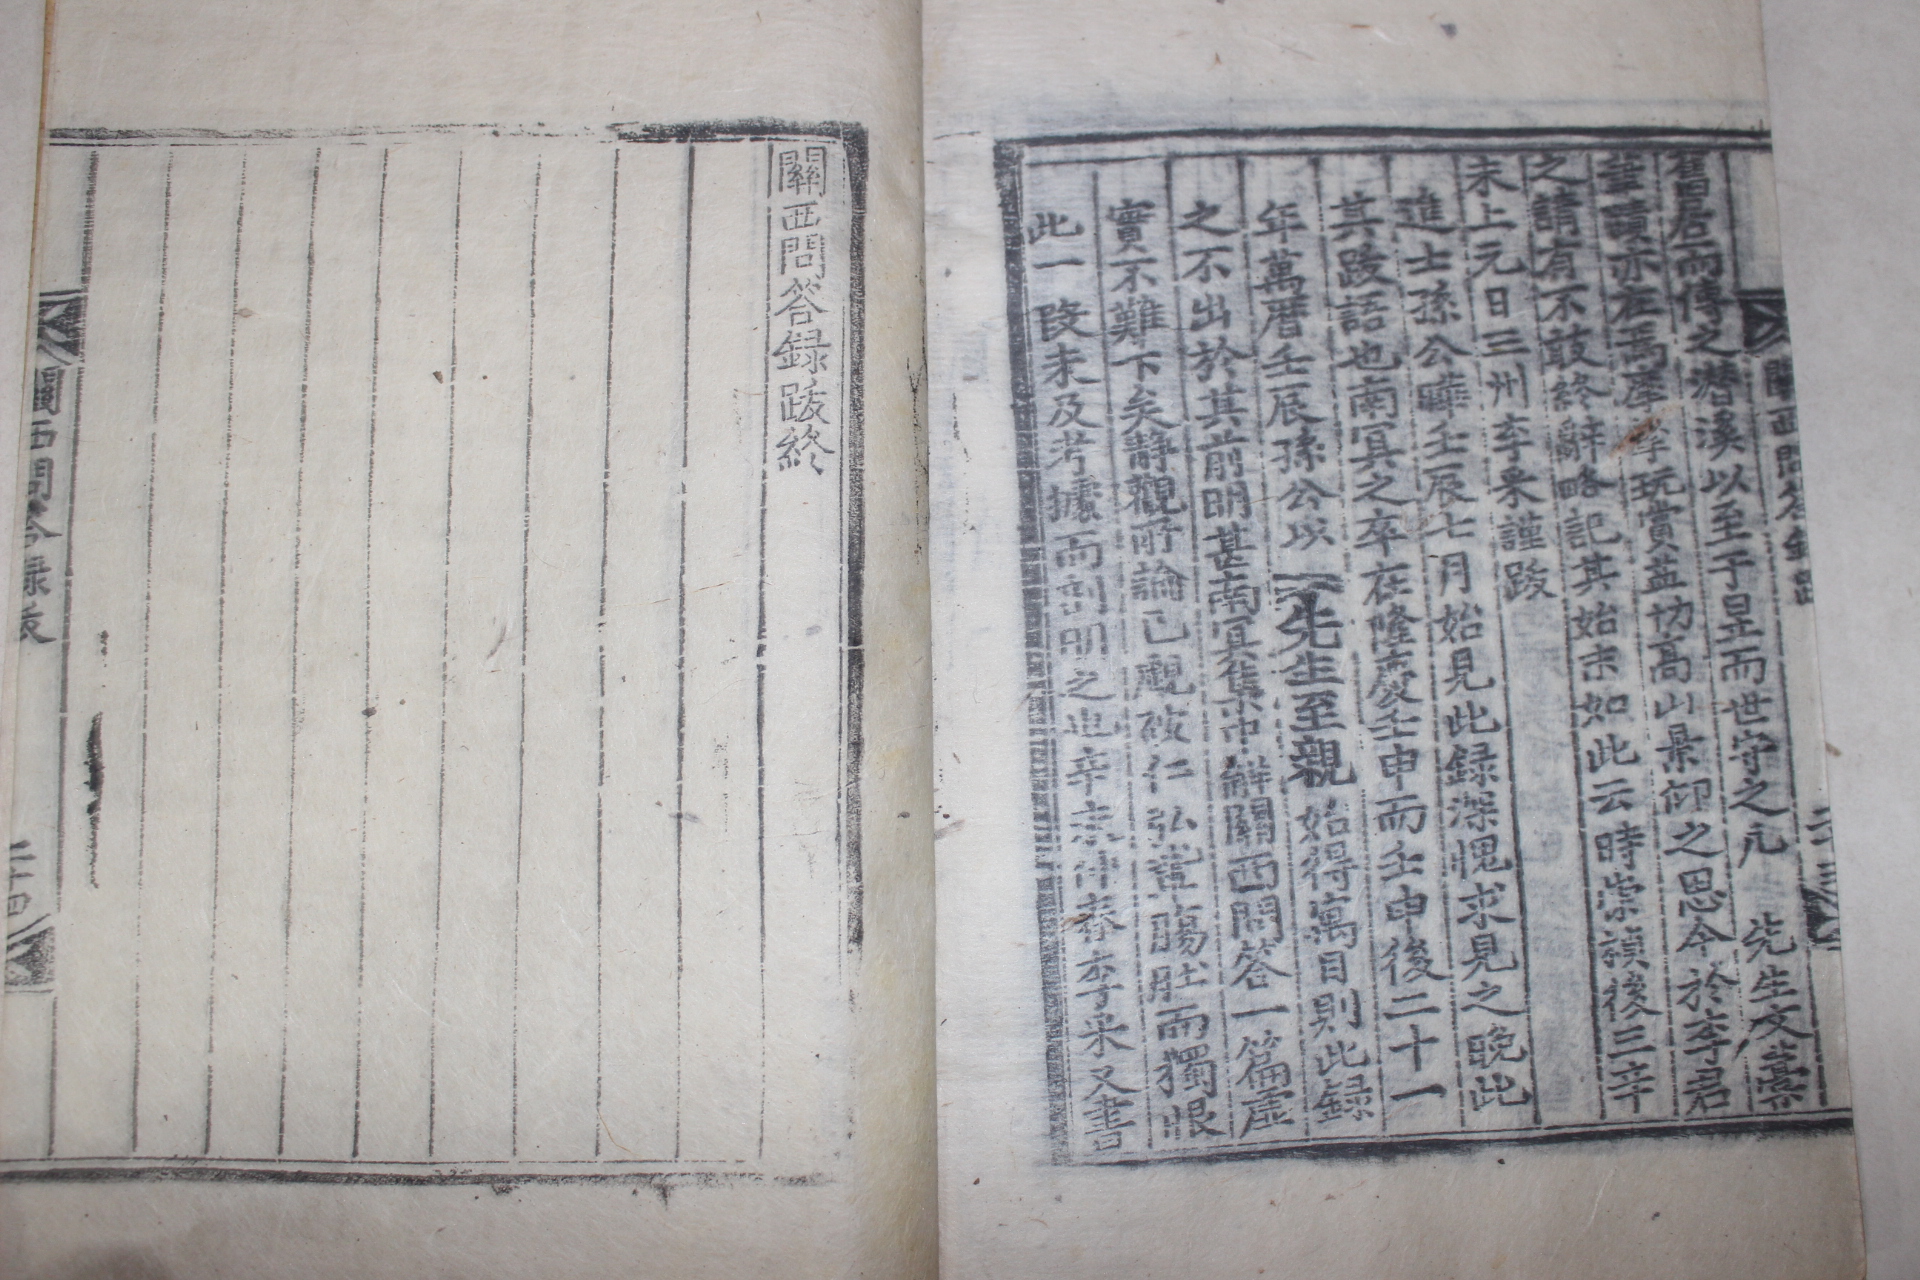 關西問答錄跋
二十三
舊居而傳之潛溪以至于昰而世守之元 先生文藁
筆蹟亦在焉摩挲玩賞益切高山景仰之思今於李君
之請有不敢終辭略記其始末如此云時崇禎後三辛
未上元日三州李采謹跋
進士孫公曄壬辰七月始見此録深愧求見之晩此
其跋語也南冥之卒在隆慶壬申而壬申後二十一
年萬曆壬辰孫公以 先生至親始得寓目則此録
之不出於其前明甚南冥集中解關西問答一篇虛
實不難下矣靜觀所論已覰破仁弘 腸肚而獨恨
此一段未及考據而剖明之也辛未仲春李采又書
關西問答録跋終
關西問答錄跋
二十四